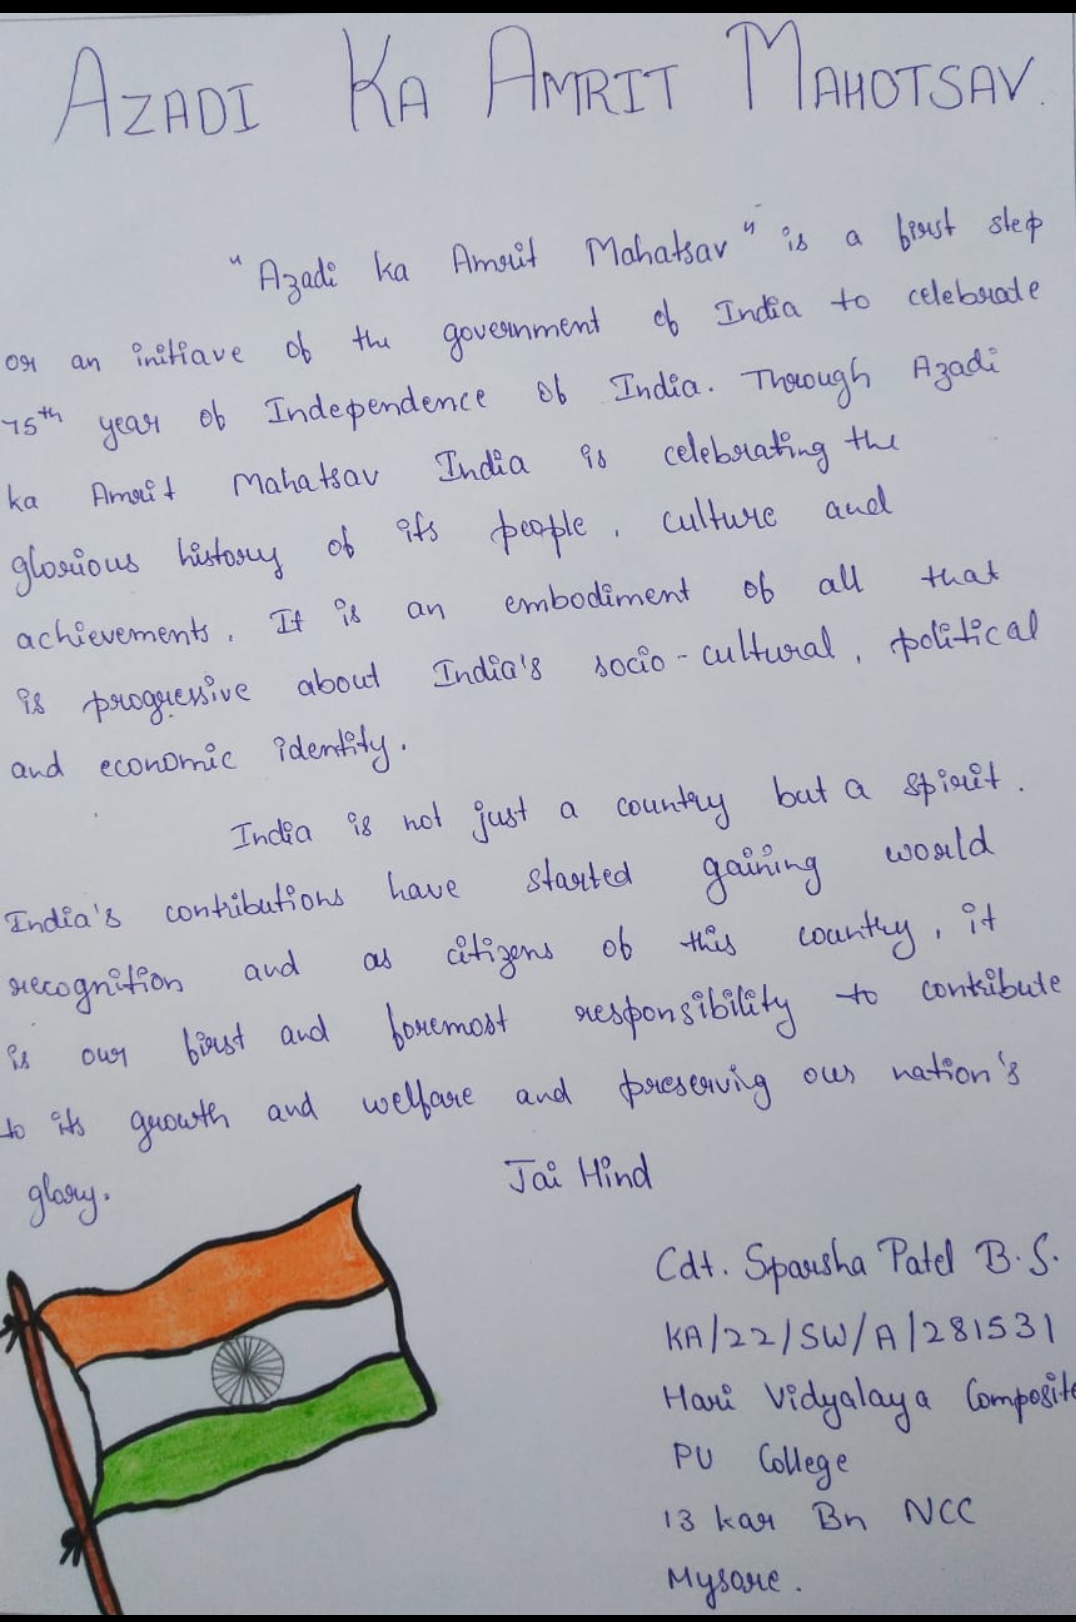 AZADI KA AMRIT MAHOTSAV.
"Azadi ka Amrit Mahatsav" is a first step
or an initiave of the government of India to celebrate
75th year of Independence of India. Through Azadi
ka Amrit Mahatsav India is celebrating the
glorious history of its people, culture and
achievements. It is an embodiment of all that
is progressive about India's socio-cultural, political
and economic identity.
India is not just a country but a spirit.
India's contributions have started gaining world
recognition and as citizens of this country, it
is our first and foremost responsibility to contribute
to its growth and welfare and preserving our nation's
glory.
Jai Hind
Cdt. Sparsha Patel B.S.
KA/22/SW/A/281531
Hari Vidyalaya Composite
PU College
13 kar Bn NCC
Mysore.